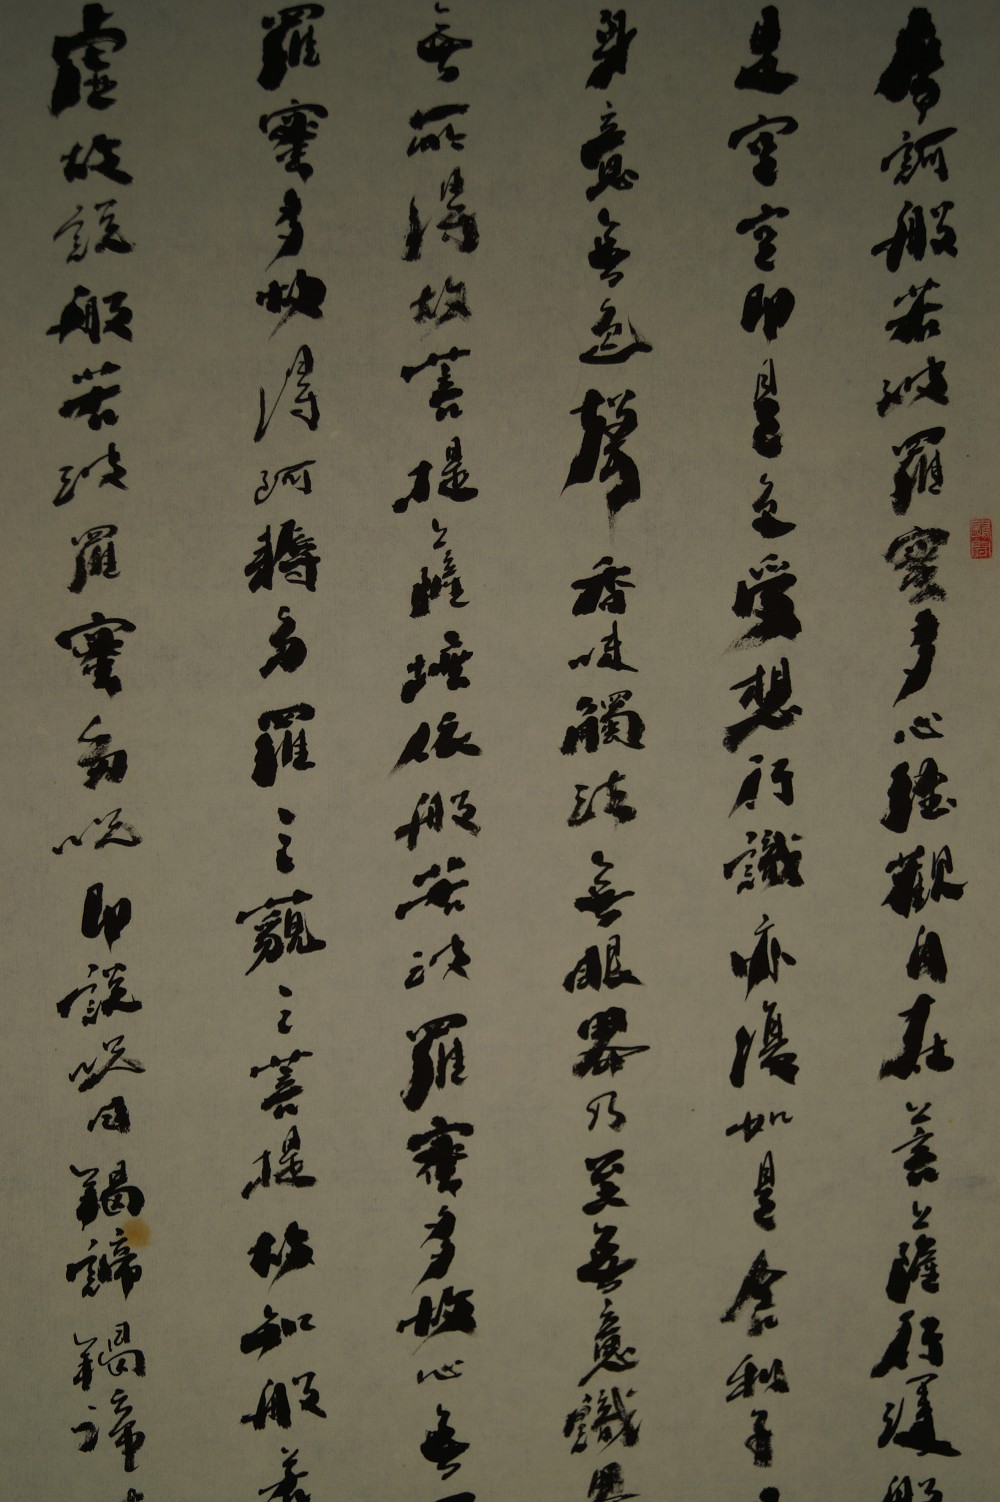 摩訶般若波羅蜜多心經觀自在菩薩行深般
是空空即是色受想行識亦復如是舍利子
身意無色聲香味觸法無眼界乃至無意識界
無所得故菩提薩埵依般若波羅蜜多故心無
羅蜜多故得阿耨多羅三藐三菩提故知般若
虛故說般若波羅蜜多咒即說咒曰羯諦羯諦